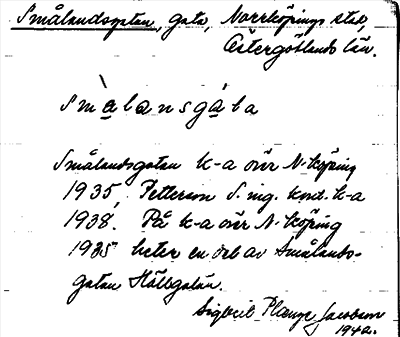 Smålandsgatan, gata, Norrköpings stad,
Östergötlands län.
Småla̲nsga̲ta
Smålandsgatan k-a över N-köping
1935, Petterson S. ing. kord. k-a
1938. På k-a över N-köping
1935 heter en del av Smålands-
gatan Hällsgatan.
Sigbrit Plænge Jacobson
1942.